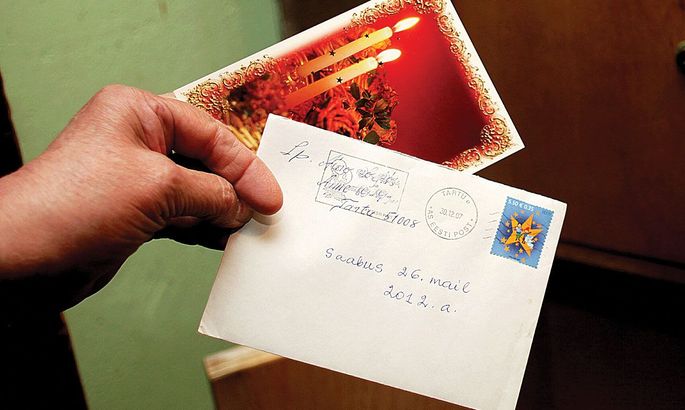 Lp.
Tartu 51008
TARTU
30.12.07
AS EESTI POST
5.50 € 0.35
Saabus 26. mail
2012. a.